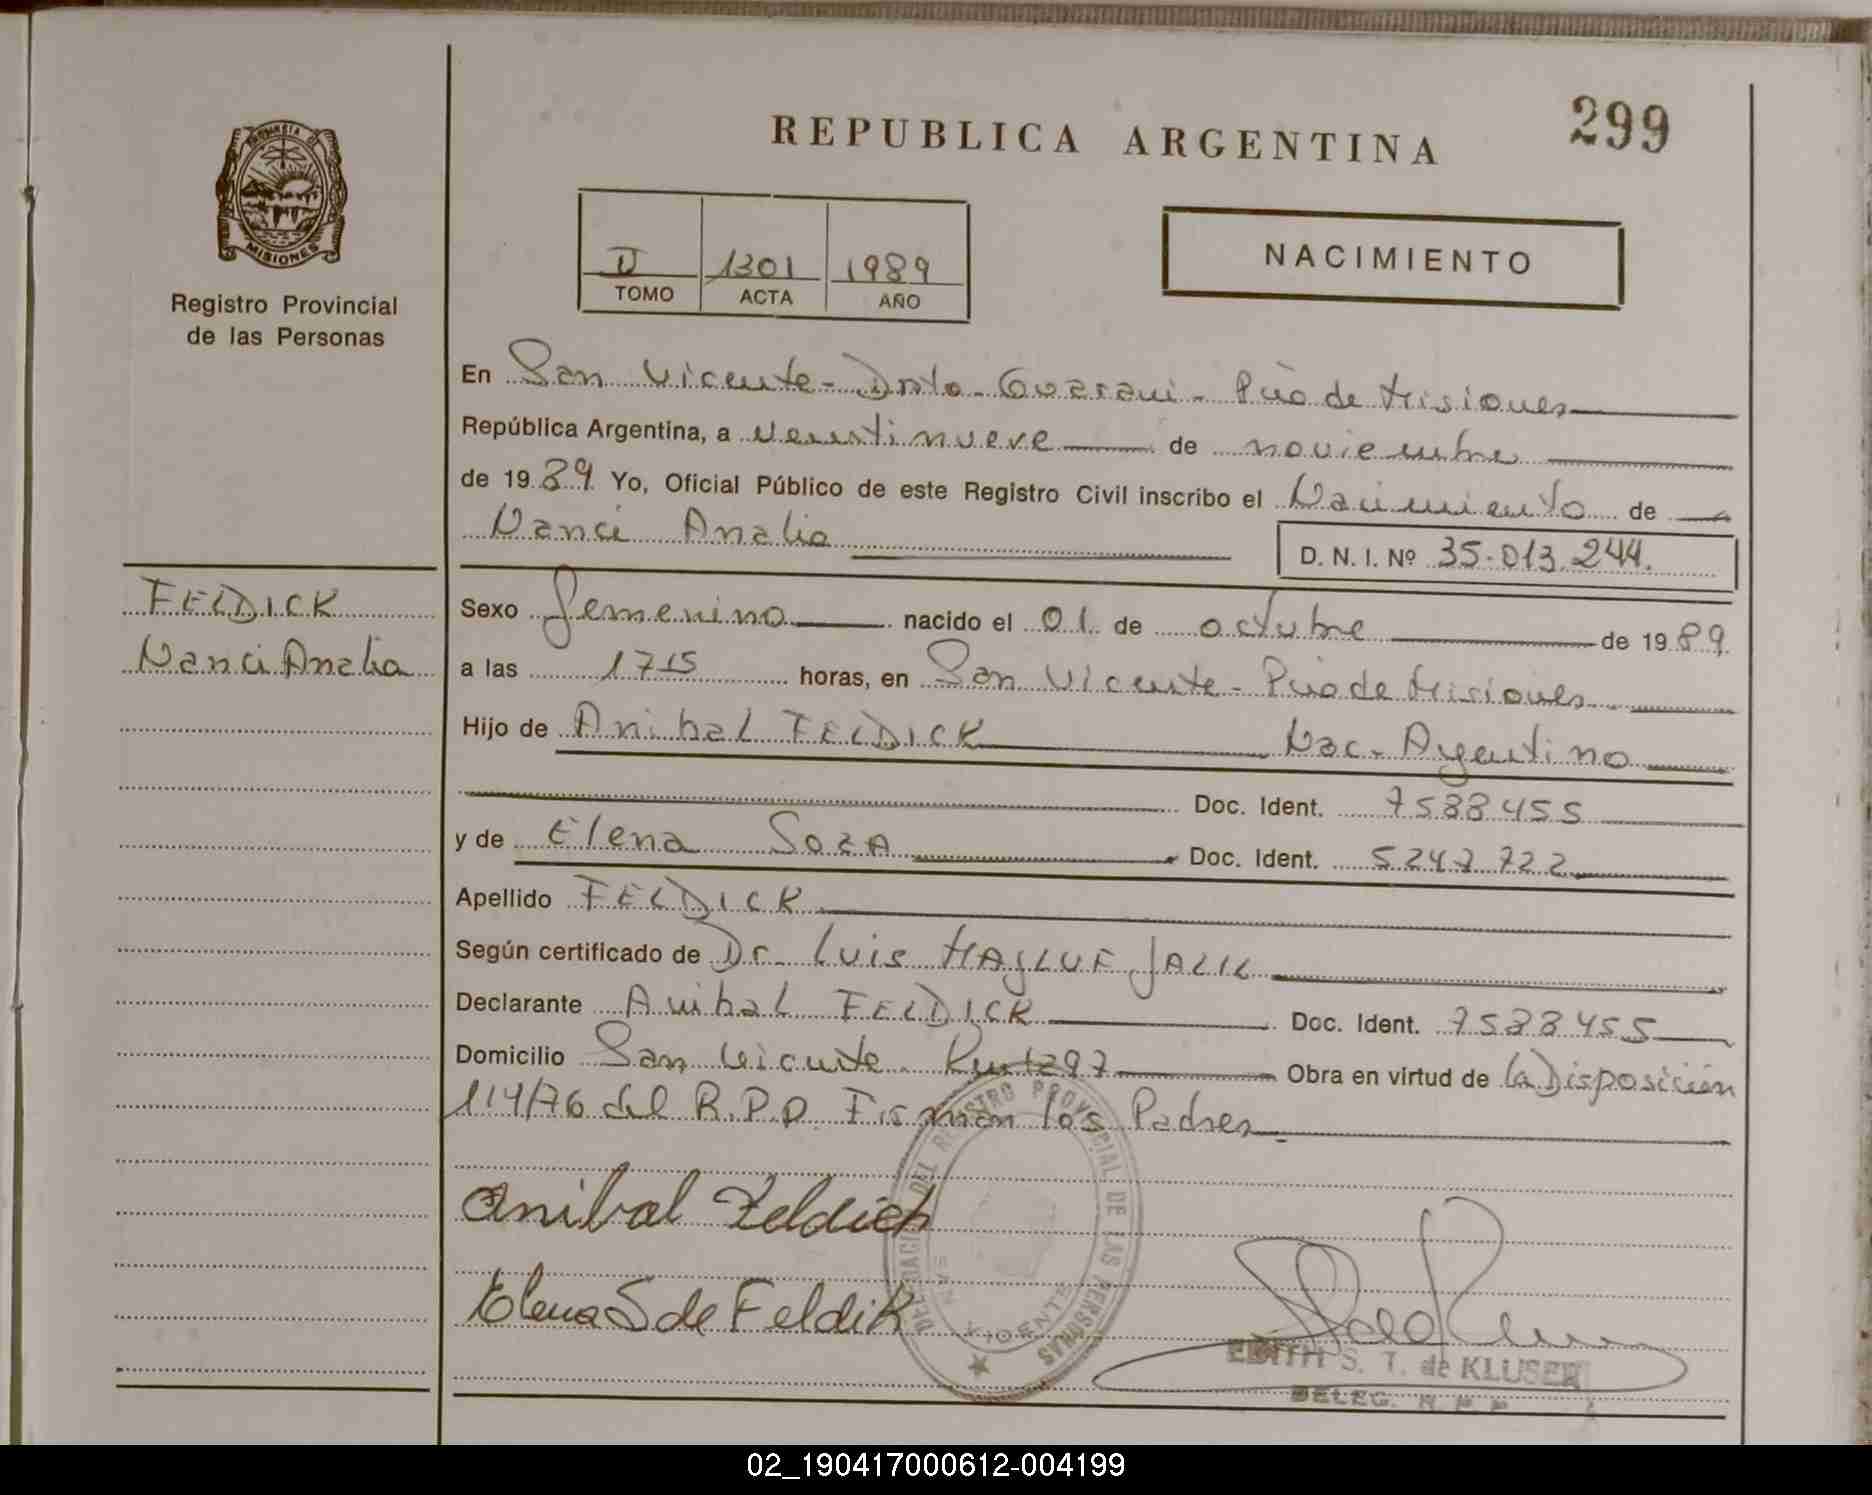 299
REPUBLICA ARGENTINA
PROVINCIA D
MISIONES
Registro Provincial
de las Personas
II 1301 1989
TOMO ACTA AÑO
NACIMIENTO
En San Vicente - Dpto. Guarani - Pcia de Misiones
República Argentina, a veintinueve de noviembre
de 1989 Yo, Oficial Público de este Registro Civil inscribo el Nacimiento de
Nanci Analia
D. N. I. Nº 35.013.244.
FELDICK
Nanci Analia
Sexo femenino nacido el 01 de octubre de 1989
a las 1715 horas, en San Vicente - Pcia de Misiones
Hijo de Anibal FELDICK Nac. Argentino
Doc. Ident. 7588455
y de Elena Soza Doc. Ident. 5247722
Apellido FELDICK
Según certificado de Dr. Luis JALIL
Declarante Anibal FELDICK Doc. Ident. 7588455
Domicilio San Vicente Obra en virtud de la Disposición
114/76 del R.P.P. Firman los Padres.
Anibal Feldick
Elena S de Feldik
DELEGACION DEL REGISTRO PROVINCIAL DE LAS PERSONAS
SAN VICENTE
EDITH S. T. de KLUSER
DELEG. R. P. P.
02_190417000612-004199